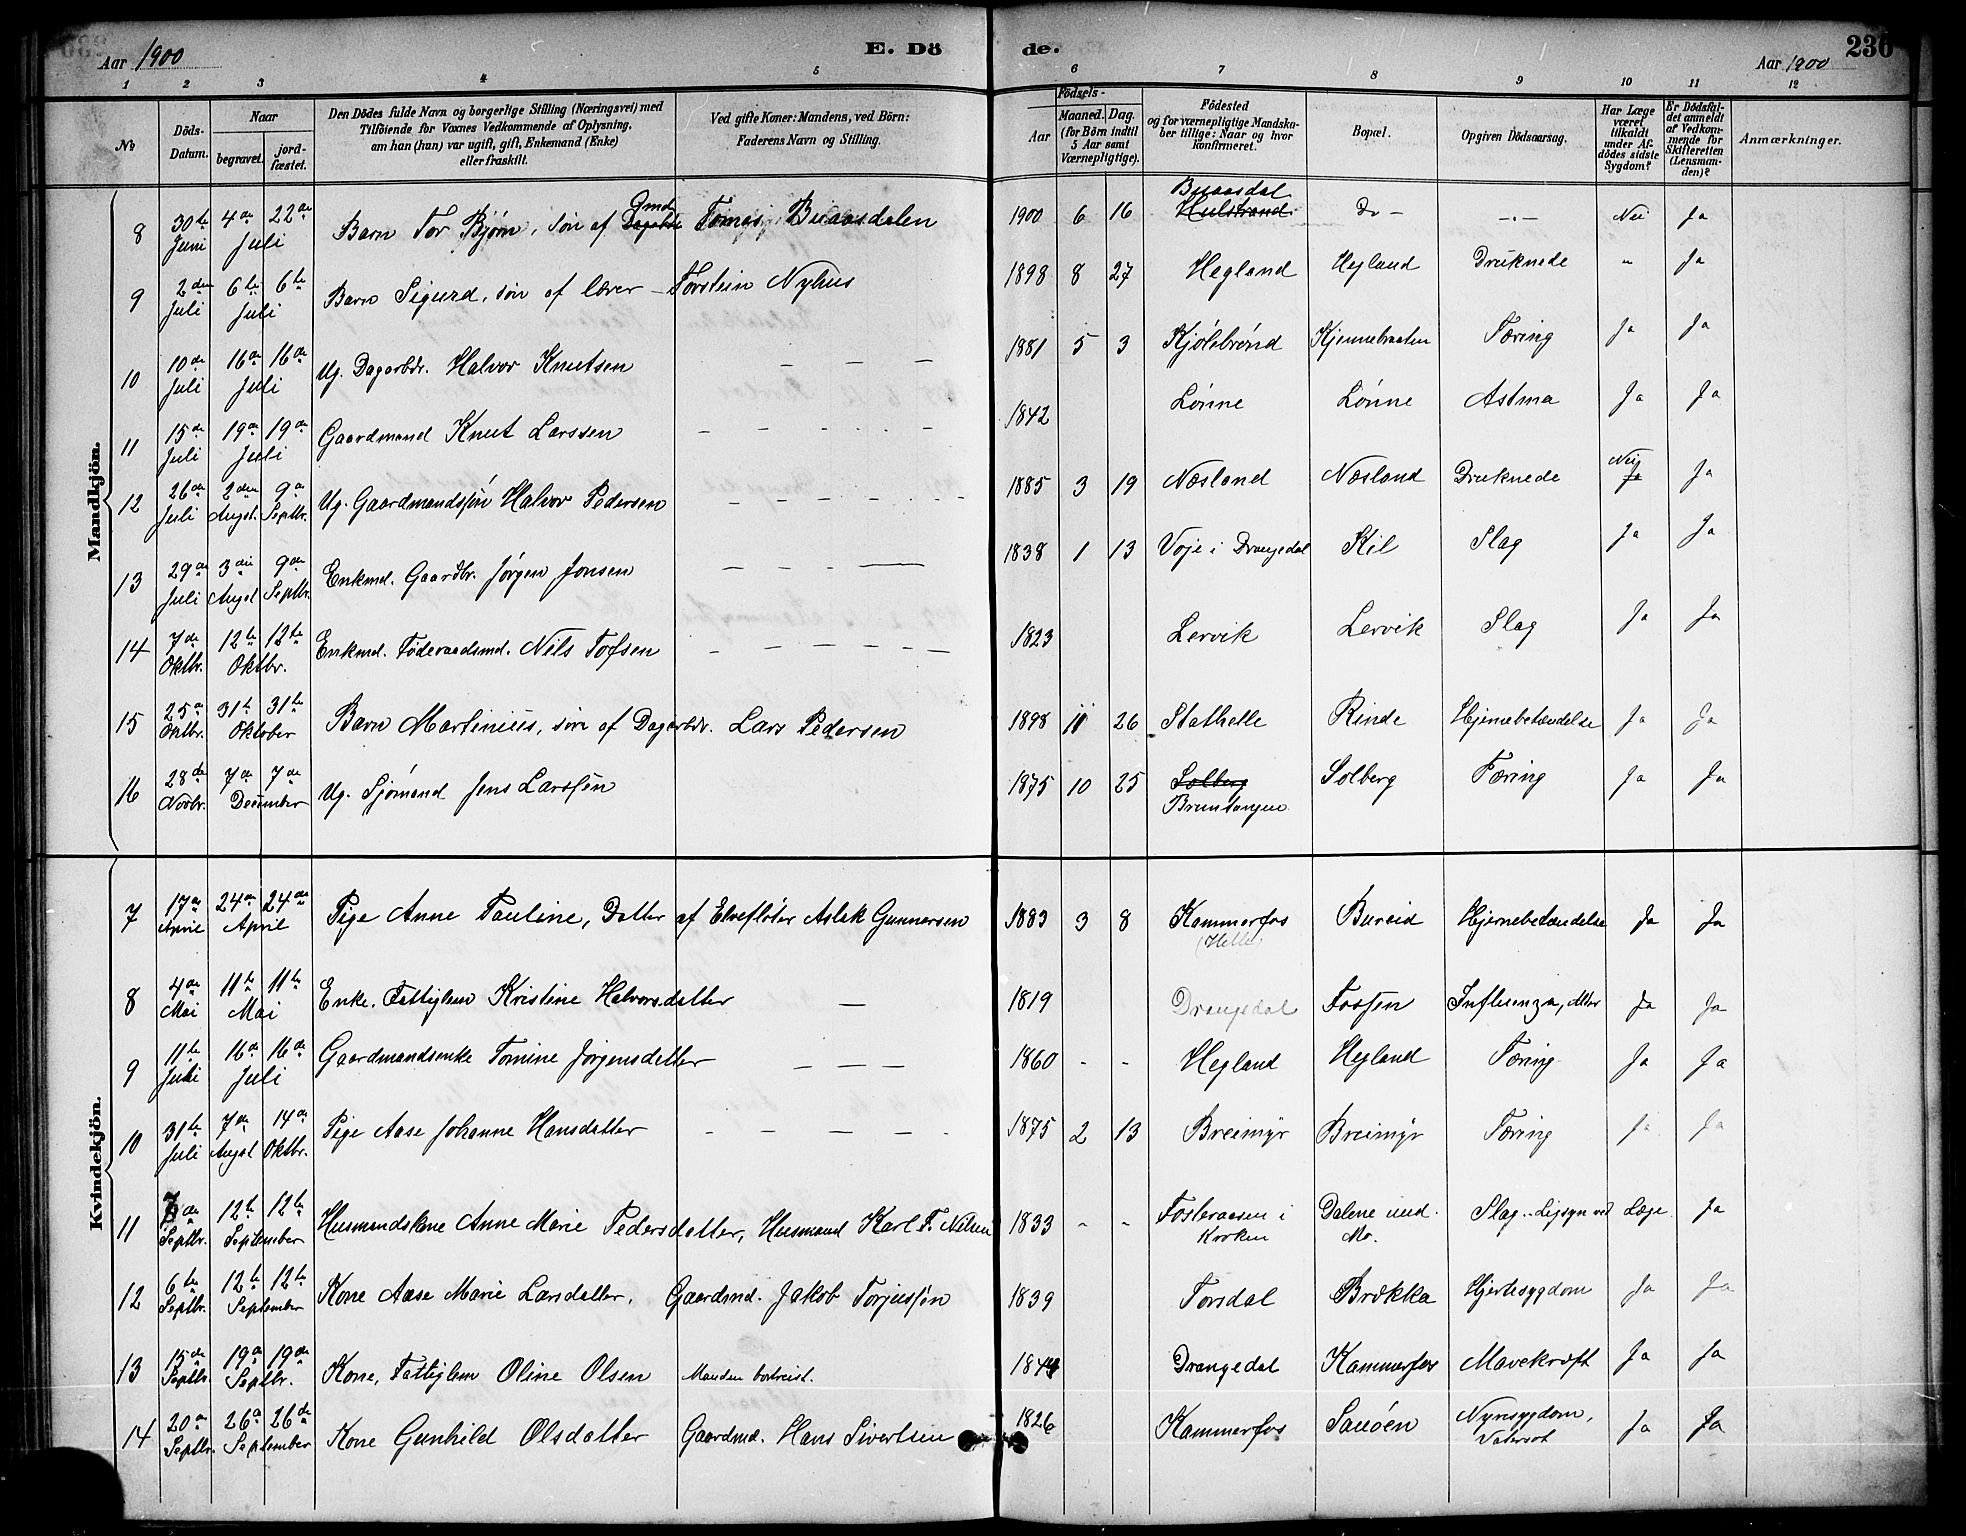 Aar 1900 E. Dö de. Aar 1900 236
1 2 3 4 5 6 7 8 9 10 11 12
No
Döds-Datum.
Naar
begravet.
jord-fæstet.
Den Dödes fulde Navn og borgerlige Stilling (Næringsvei) med
Tilföiende for Voxnes Vedkommende af Oplysning,
om han (hun) var ugift, gift, Enkemand (Enke)
eller fraskilt.
Ved gifte Koner: Mandens, ved Börn:
Faderens Navn og Stilling.
Födsels-
Aar
Maaned. Dag.
(for Börn indtil
5 Aar samt
Værnepligtige).
Födested
og for værnepligtige Mandska-
ber tillige: Naar og hvor
konfirmeret.
Bopæl.
Opgiven Dödsaarsag.
Har Læge
været
tilkaldt
under Af-
dödes sidste
Sygdom?
Er Dödsfal-
det anmeldt
af Vedkom-
mende for
Skifteretten
(Lensman-
den)?
Anmærkninger.
Mandkjön.
8 30te Juni 4de 22de Juli Barn Tor Bjørn, søn af Dagarbdr. Gmd Tomas Buaasdalen 1900 6 16 Hulstrand Buaasdal Do – –.– Nei Ja
9 2den Juli 6te 6te Juli Barn Sigurd, søn af lærer – Torstein Nyhus 1898 8 27 Hegland Hegland Druknede " Ja
10 10de Juli 16de 16de Juli Ug. Dagarbdr. Halvor Knutsen – – – 1881 5 3 Kjølebrønd Kjennebraaten Tæring Ja Ja
11 15de Juli 19de 19de Juli Gaardmand Knut Larssen – – – – – 1842 Lønne Lønne Astma Ja Ja
12 26de Juli 2den Augst. 9de Septbr. Ug. Gaardmandssøn Halvor Pedersen – – – – – 1885 3 19 Næsland Næsland Druknede Nei Ja Ja
13 29de Juli 3die Augst 9de Septbr. Enkmd. Gaardbr. Jørgen Jonsen – – – 1838 1 13 Voje i Drangedal Kil Slag Ja Ja
14 7de Oktbr. 12te 12te Oktbr. Enkmd. Føderaadsmd. Nils Tofsen – – – – – 1823 Lervik Lervik Slag Ja Ja
15 25de Oktbr. 31te 31te Oktober Barn Martinius, søn af Dagarbdr. Lars Pedersen 1898 11 26 Stathelle Rinde Hjernebetændelse Ja Ja
16 28de Novbr. 7de 7de December Ug. Sjømand Jens Larssen 1875 10 25 Solberg Bruntangen Solberg Tæring Ja Ja
Kvindekjön.
7 17de April 24de 24de April Pige Anne Pauline, Datter af Elvefløter Aslak Gunnersen 1883 3 8 Kammerfos (Helle) Bureid Hjernebetændelse Ja Ja
8 4de Mai 11te 11te Mai Enke. Fattiglem Kristine Halvorsdatter – – 1819 Drangedal Fossen Influenza, Alder Ja Ja
9 11te Juli 16de 16de Juli Gaardmandsenke Tomine Jørgensdatter – – – 1860 - - Hegland Hegland Tæring Ja Ja
10 31te Juli 7de Augst 14de Oktbr. Pige Aase Johanne Hansdatter – – – – – 1875 2 13 Breimyr Breimyr Tæring Ja Ja
11 7de Septbr. 12te 12te September Husmandskone Anne Marie Pedersdatter, Husmand Karl F. Nilsen 1833 - - Fosteraasen i Kroken Dalene und. Mo. Slag. Ligsyn ved Læge. Ja
12 6te Septbr. 12te 12te September Kone Aase Marie Larsdatter, Gaardmd. Jakob Torjussøn 1839 Torsdal Brøkka Hjertesygdom Ja Ja
13 15de Septbr. 19de 19de Septbr. Kone, Fattiglem Oline Olsen Manden bortreist. 1844 Drangedal Kammerfos Mavekræft Ja Ja
14 20de Septbr. 26de 26de September Kone Gunhild Olsdatter Gaardmd. Hans Sivertsen 1826 Kammerfos Sauøen Nyresygdom, Vatersot Ja Ja